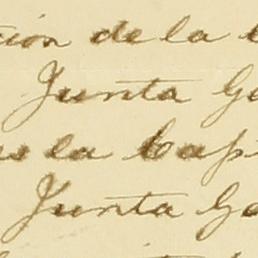 ción de la
Junta Ge
la Cap
Junta Ge